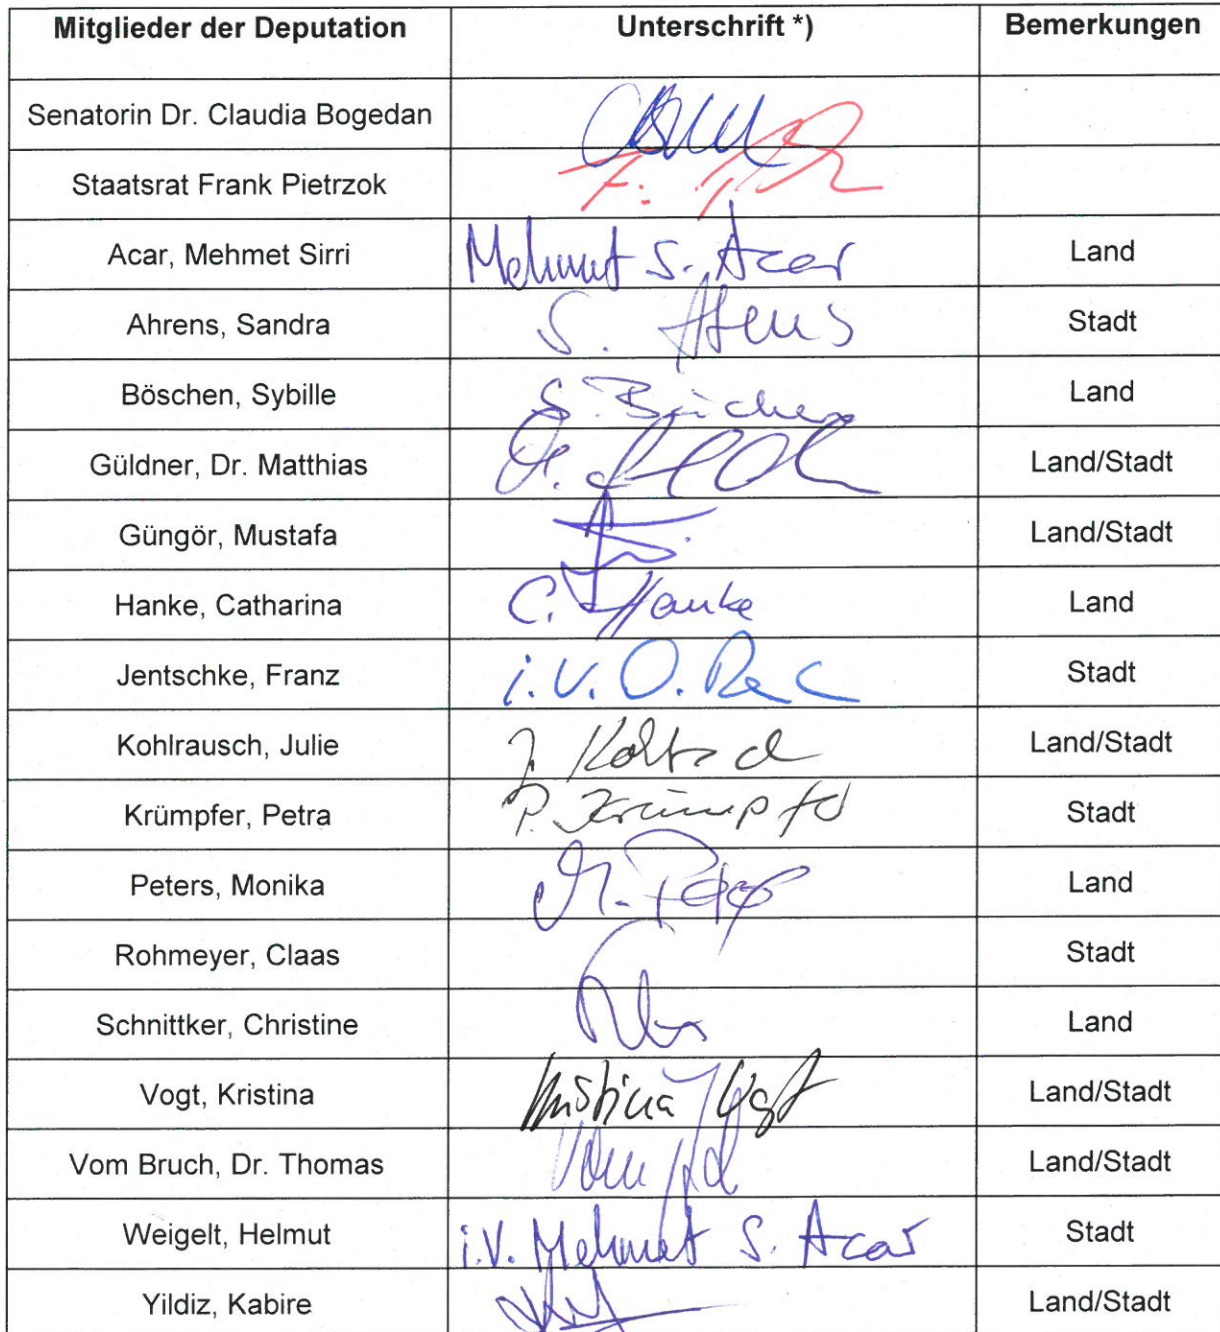 Mitglieder der Deputation Unterschrift *) Bemerkungen
Senatorin Dr. Claudia Bogedan
Staatsrat Frank Pietrzok F.
Acar, Mehmet Sirri Mehmet S. Acar Land
Ahrens, Sandra S. Ahrens Stadt
Böschen, Sybille S. Land
Güldner, Dr. Matthias Land/Stadt
Güngör, Mustafa Land/Stadt
Hanke, Catharina C. Hanke Land
Jentschke, Franz i.V. O. Stadt
Kohlrausch, Julie J. Land/Stadt
Krümpfer, Petra P. Krümpfer Stadt
Peters, Monika M. Land
Rohmeyer, Claas Stadt
Schnittker, Christine Land
Vogt, Kristina Kristina Vogt Land/Stadt
Vom Bruch, Dr. Thomas Land/Stadt
Weigelt, Helmut i.V. Mehmet S. Acar Stadt
Yildiz, Kabire Land/Stadt